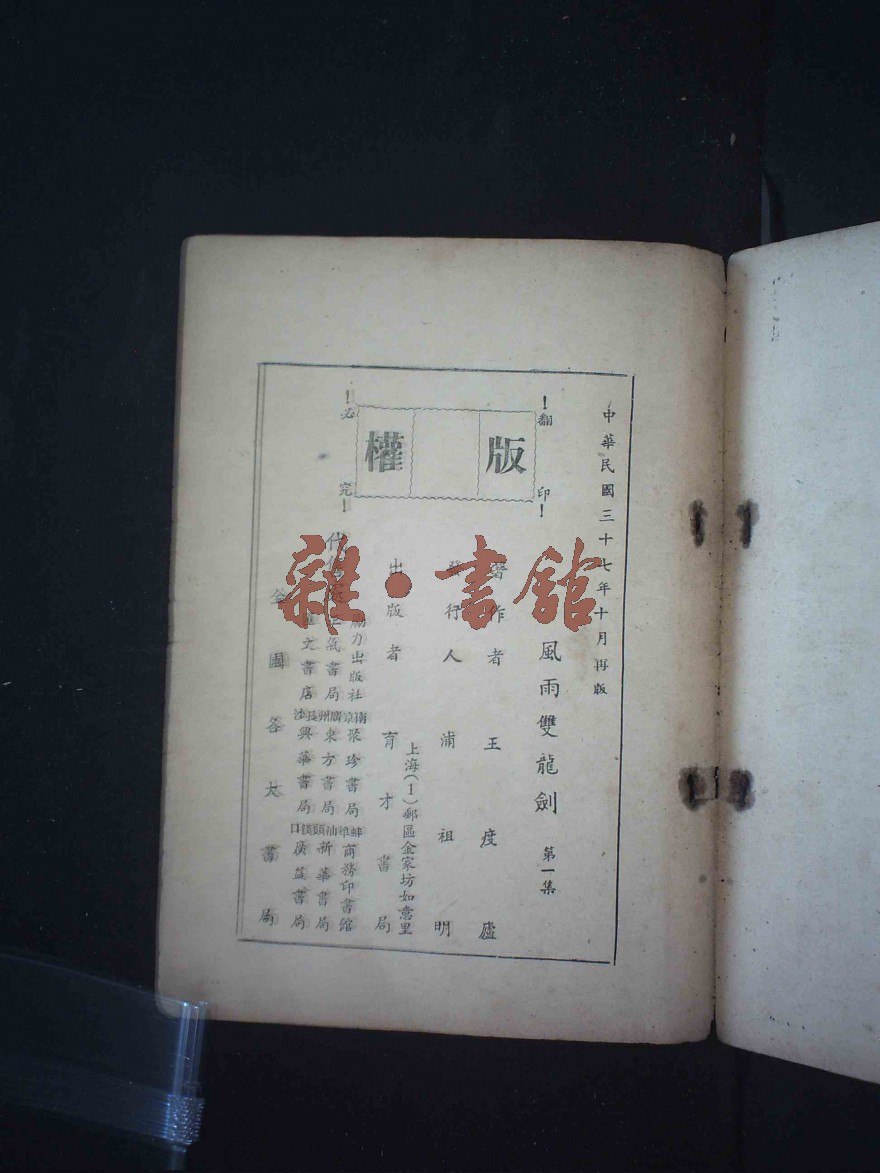 中華民國三十七年十月再版
風雨雙龍劍 第一集
!翻印!
版權
!必究!
著作者 王度廬
發行人 浦祖明
出版者 育才書局
上海(1)郵區金家坊如意里
勵力出版社
正氣書局
文書店
南京 聚珍書局
廣州 東方書局
長沙 興華書局
蚌埠 商務印書館
汕頭 新華書局
漢口 廣益書局
全國各大書局
雜·書館